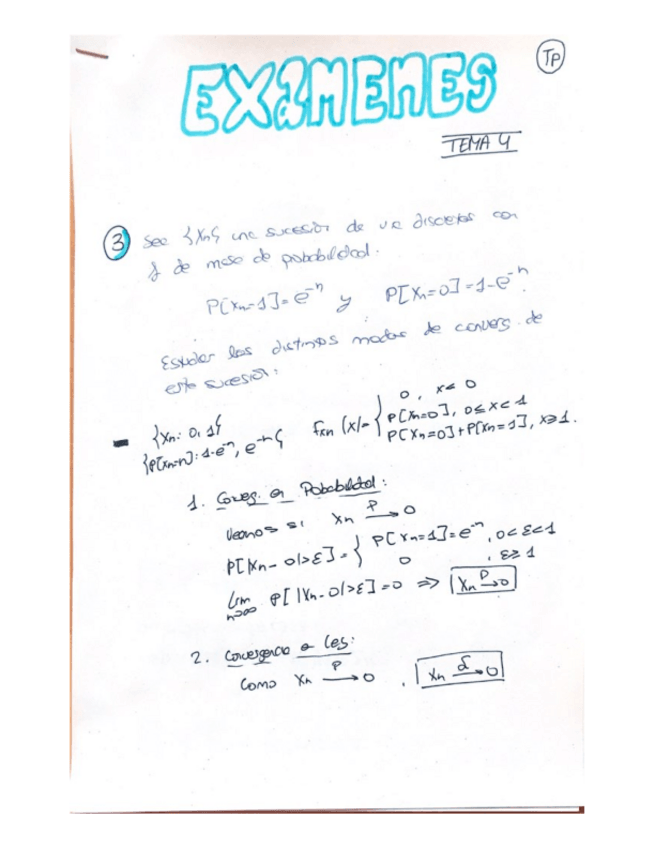 TP
EXÁMENES
TEMA 4
③ Sea {Xn} una sucesión de v.a discretas con
f de masa de probabilidad.
P[Xn=1]=e^-n y P[Xn=0]=1-e^-n.
Estudiar los distintos modos de converg. de
esta sucesión:
- {Xn: 0, 1}
{P[Xn=n]: 1-e^-n, e^-n} Fxn (x)= { 0, x<0
P[Xn=0], 0≤x<1
P[Xn=0]+P[Xn=1], x≥1.
1. Converg. en Probabilidad:
Veamos si Xn P→ 0
P[|Xn-0|>ε]= { P[Xn=1]=e^-n, 0<ε<1
0, ε≥1
Lim n→∞ P[|Xn-0|>ε]=0 ⇒ Xn P→ 0
2. Convergencia en Ley:
Como Xn P→ 0, Xn L→ 0